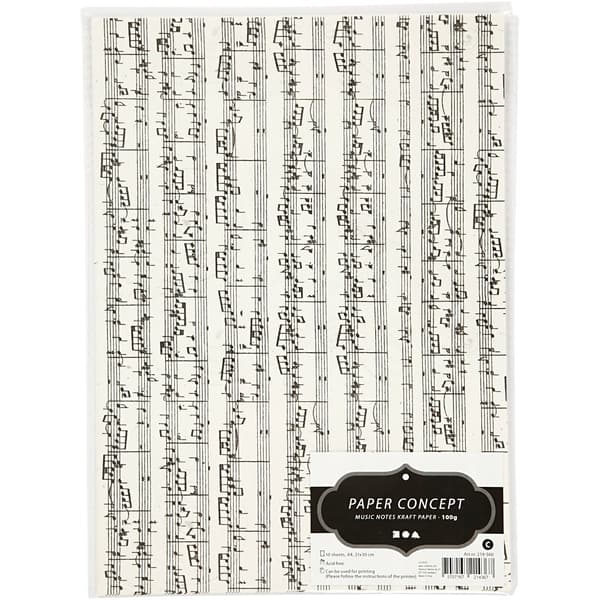 PAPER CONCEPT
MUSIC NOTES KRAFT PAPER - 100g
C
sheets, A4, 21x30 cm
Acid free
Can be used for printing
(Please follow the instructions of the printer)